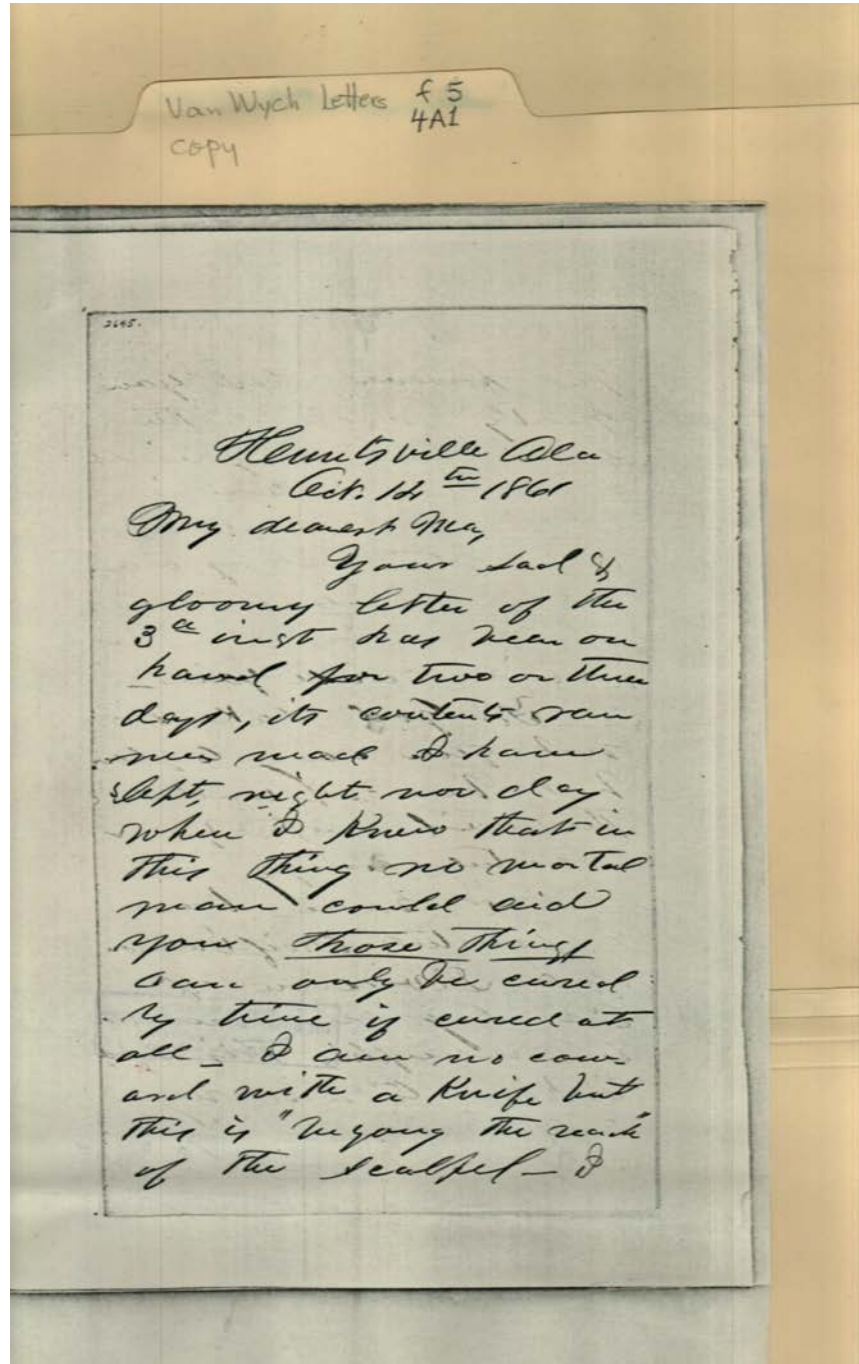 Van Wych Letters f 5
4A1
copy
2645.
Huntsville Ala
Oct. 14th 1861
My dearest May,
Your sad &
gloomy letter of the
3d inst has been on
hand for two or three
days, its contents ran
me mad I have
slept, night nor day
when I Knew that in
this thing no mortal
man could aid
you those things
can only be cured
by time if cured at
all _ I am no cow-
ard with a Knife but
this is "beyong the reach"
of the scalpel _ I